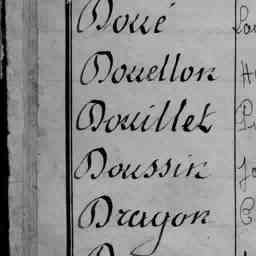 Doué
Douellon
Douillet
Doussin
Dragon